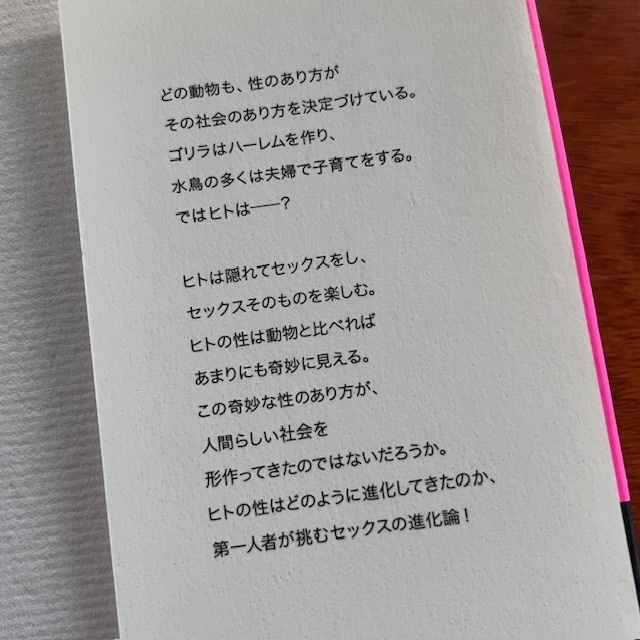 どの動物も、性のあり方が
その社会のあり方を決定づけている。
ゴリラはハーレムを作り、
水鳥の多くは夫婦で子育てをする。
ではヒトは──？
ヒトは隠れてセックスをし、
セックスそのものを楽しむ。
ヒトの性は動物と比べれば
あまりにも奇妙に見える。
この奇妙な性のあり方が、
人間らしい社会を
形作ってきたのではないだろうか。
ヒトの性はどのように進化してきたのか、
第一人者が挑むセックスの進化論！